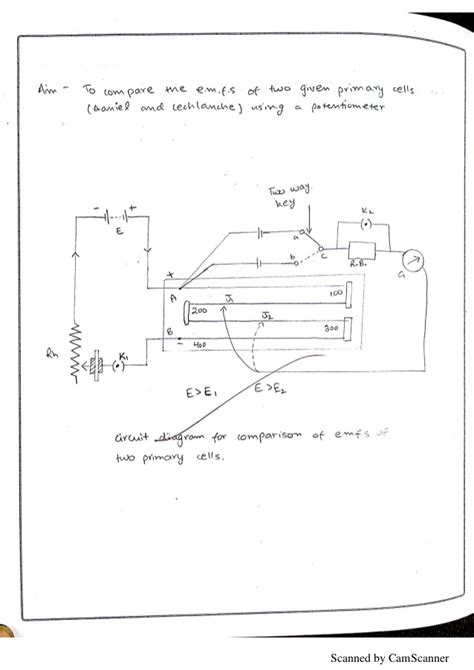 Aim - To compare the e.m.f.s of two given primary cells
(Daniel and Leclanche) using a potentiometer
Two way
key
K2
- +
E
a
b
c
R.B.
G
+
A
100
200
J1
J2
B
300
- 400
Rh
K1
E>E1
E>E2
Circuit diagram for comparison of emfs of
two primary cells.
Scanned by CamScanner